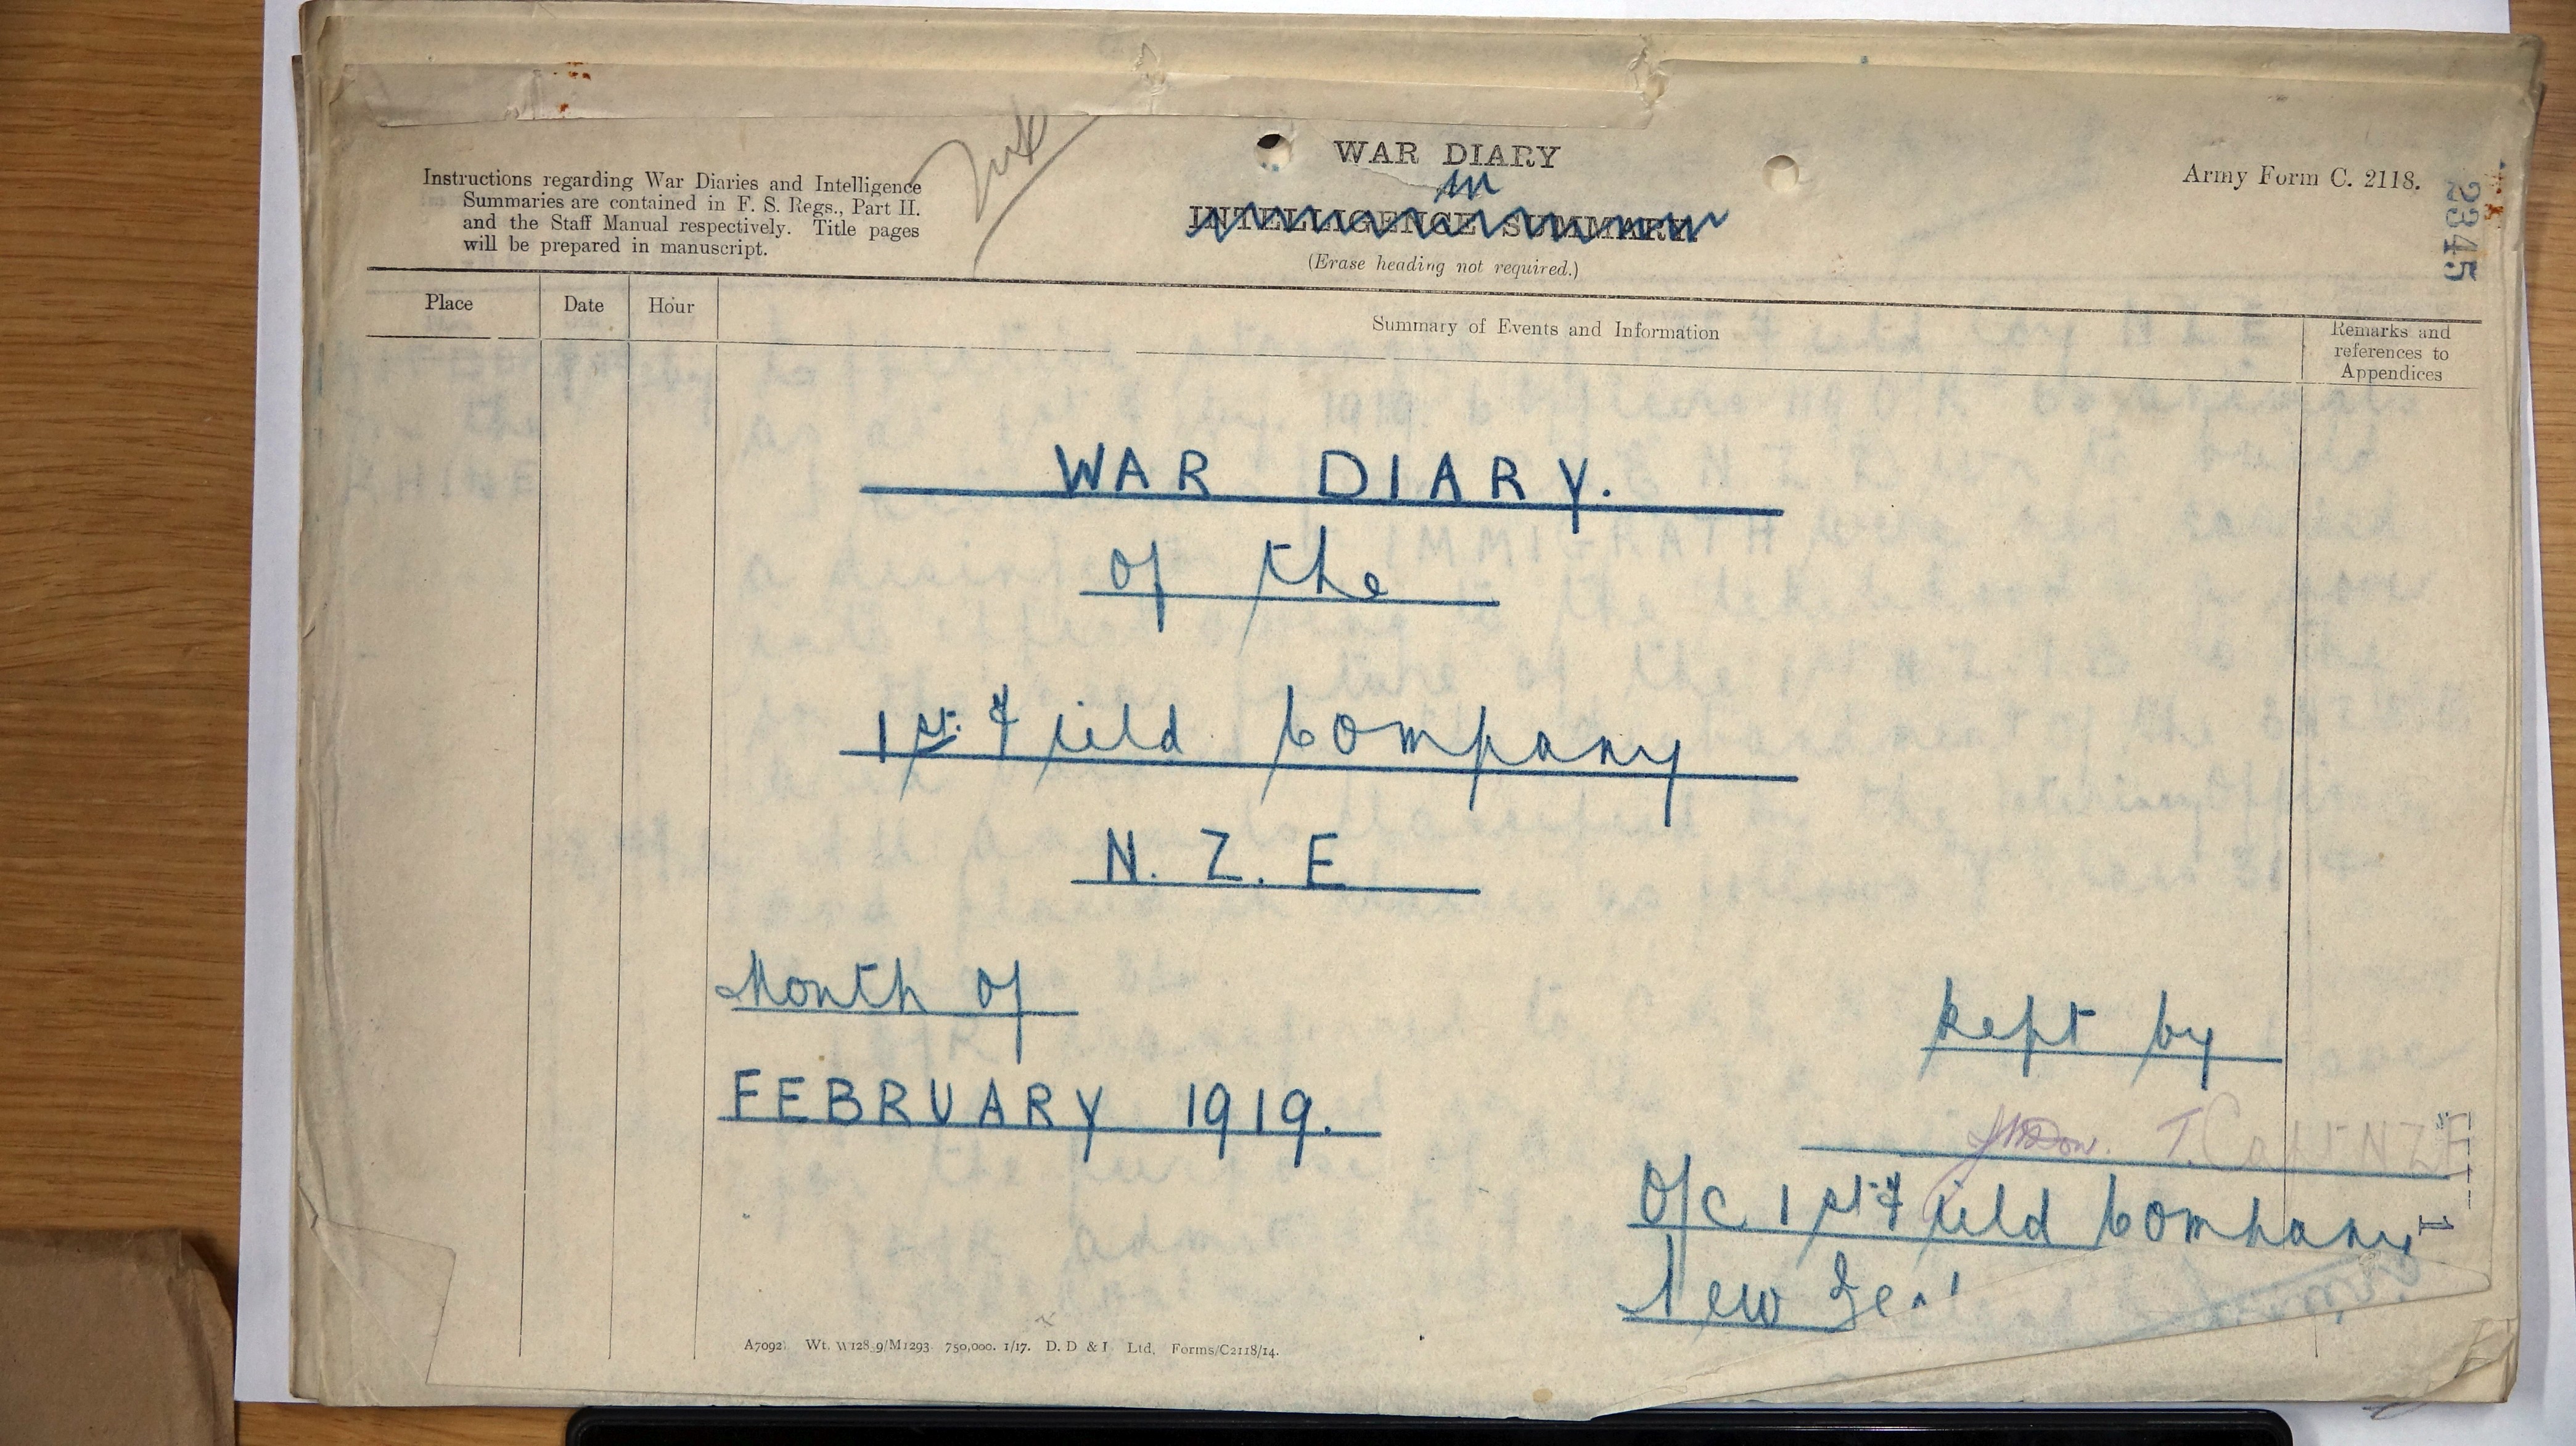 WAR DIARY
Army Form C. 2118.
Instructions regarding War Diaries and Intelligence
Summaries are contained in F. S. Regs., Part II.
and the Staff Manual respectively. Title pages
will be prepared in manuscript.
INTELLIGENCE SUMMARY
(Erase heading not required.)
23345
Place
Date
Hour
Summary of Events and Information
Remarks and
references to
Appendices
WAR DIARY.
of the
1st. Field Company
N. Z. E
Month of
FEBRUARY 1919.
kept by
T. Capt NZE
O/C 1st Field Company
New
A7092. Wt. W128.9/M1293 750,000. 1/17. D. D & L Ltd, Forms/C2118/14.